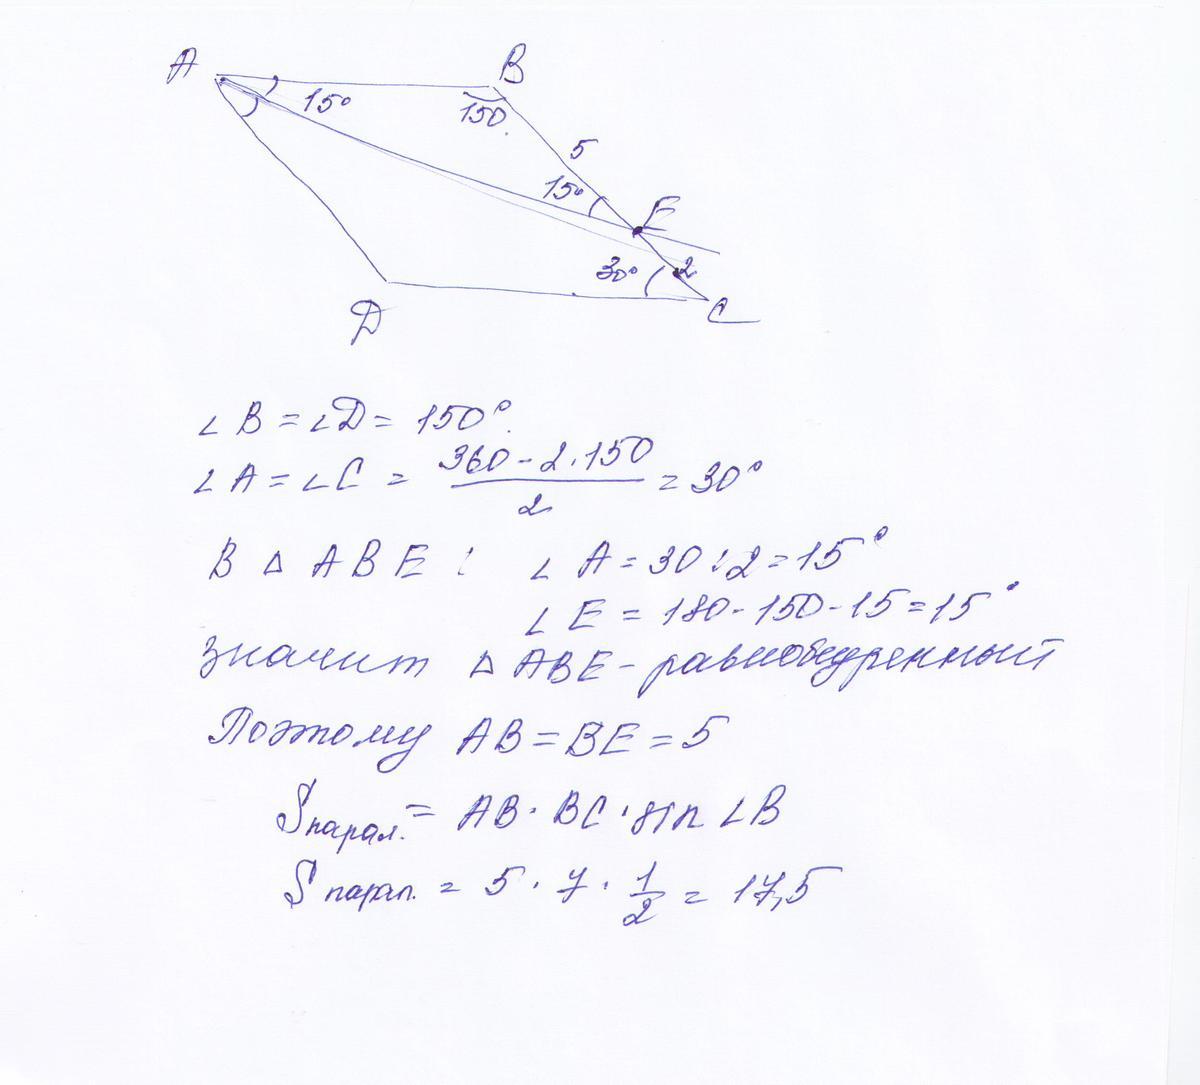 A
B
15°
150
5
15°
E
30°
2
C
D
∠B = ∠D = 150°.
∠A = ∠C = (360 - 2·150)/2 = 30°
В △ ABE: ∠A = 30:2 = 15°
∠E = 180 - 150 - 15 = 15°
значит △ ABE - равнобедренный
Поэтому AB = BE = 5
Sпарал. = AB · BC · sin ∠B
Sпарал. = 5 · 7 · 1/2 = 17,5